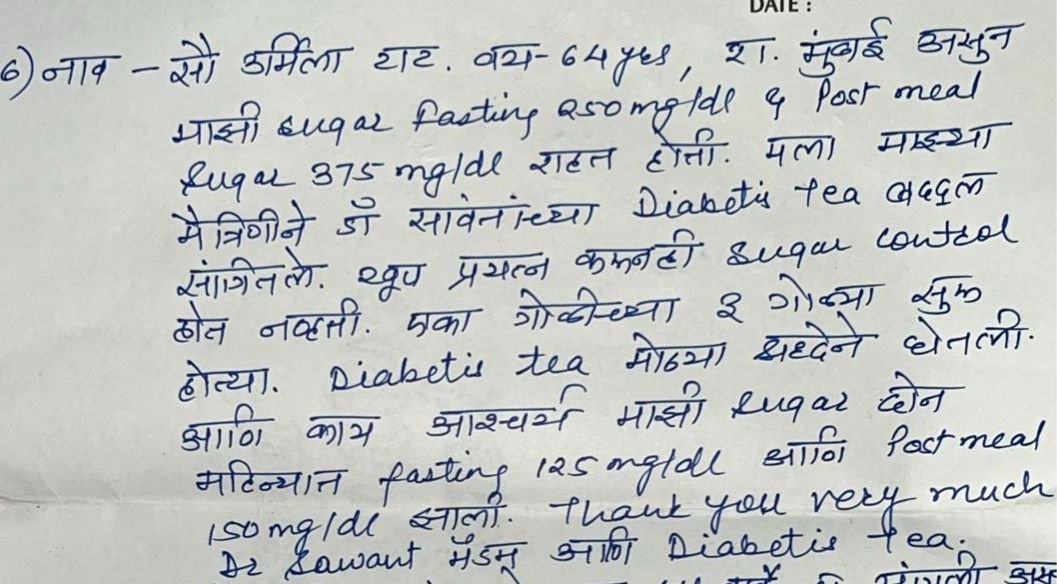 DATE :
6) नाव - सौ उर्मिला घाट. वय- 64 yrs, रा. मुंबई असुन
माझी sugar fasting 250 mg/dl व Post meal
sugar 375 mg/dl राहत होती. मला माझ्या
मैत्रिणीने डॉ सावंतांच्या Diabetis Tea बद्दल
सांगितले. खूप प्रयत्न करूनही sugar control
होत नव्हती. एका गोळीच्या ३ गोळ्या सुरू
होत्या. Diabetis tea मोठ्या श्रध्देने घेतली.
आणि काय आश्चर्य माझी sugar दोन
महिन्यात fasting 125 mg/dl आणि Post meal
150 mg/dl झाली. Thank you very much
Dr Sawant मॅडम आणि Diabetis tea.